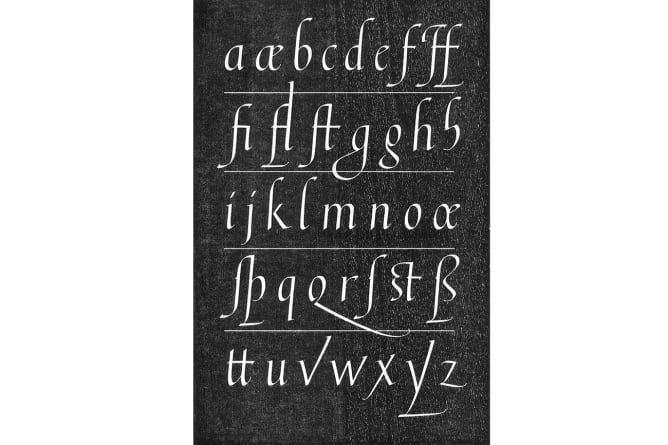 aæbcdefff
fiflftgghh
ijklmnoœ
ſpqqrſstß
ttuvwxyz